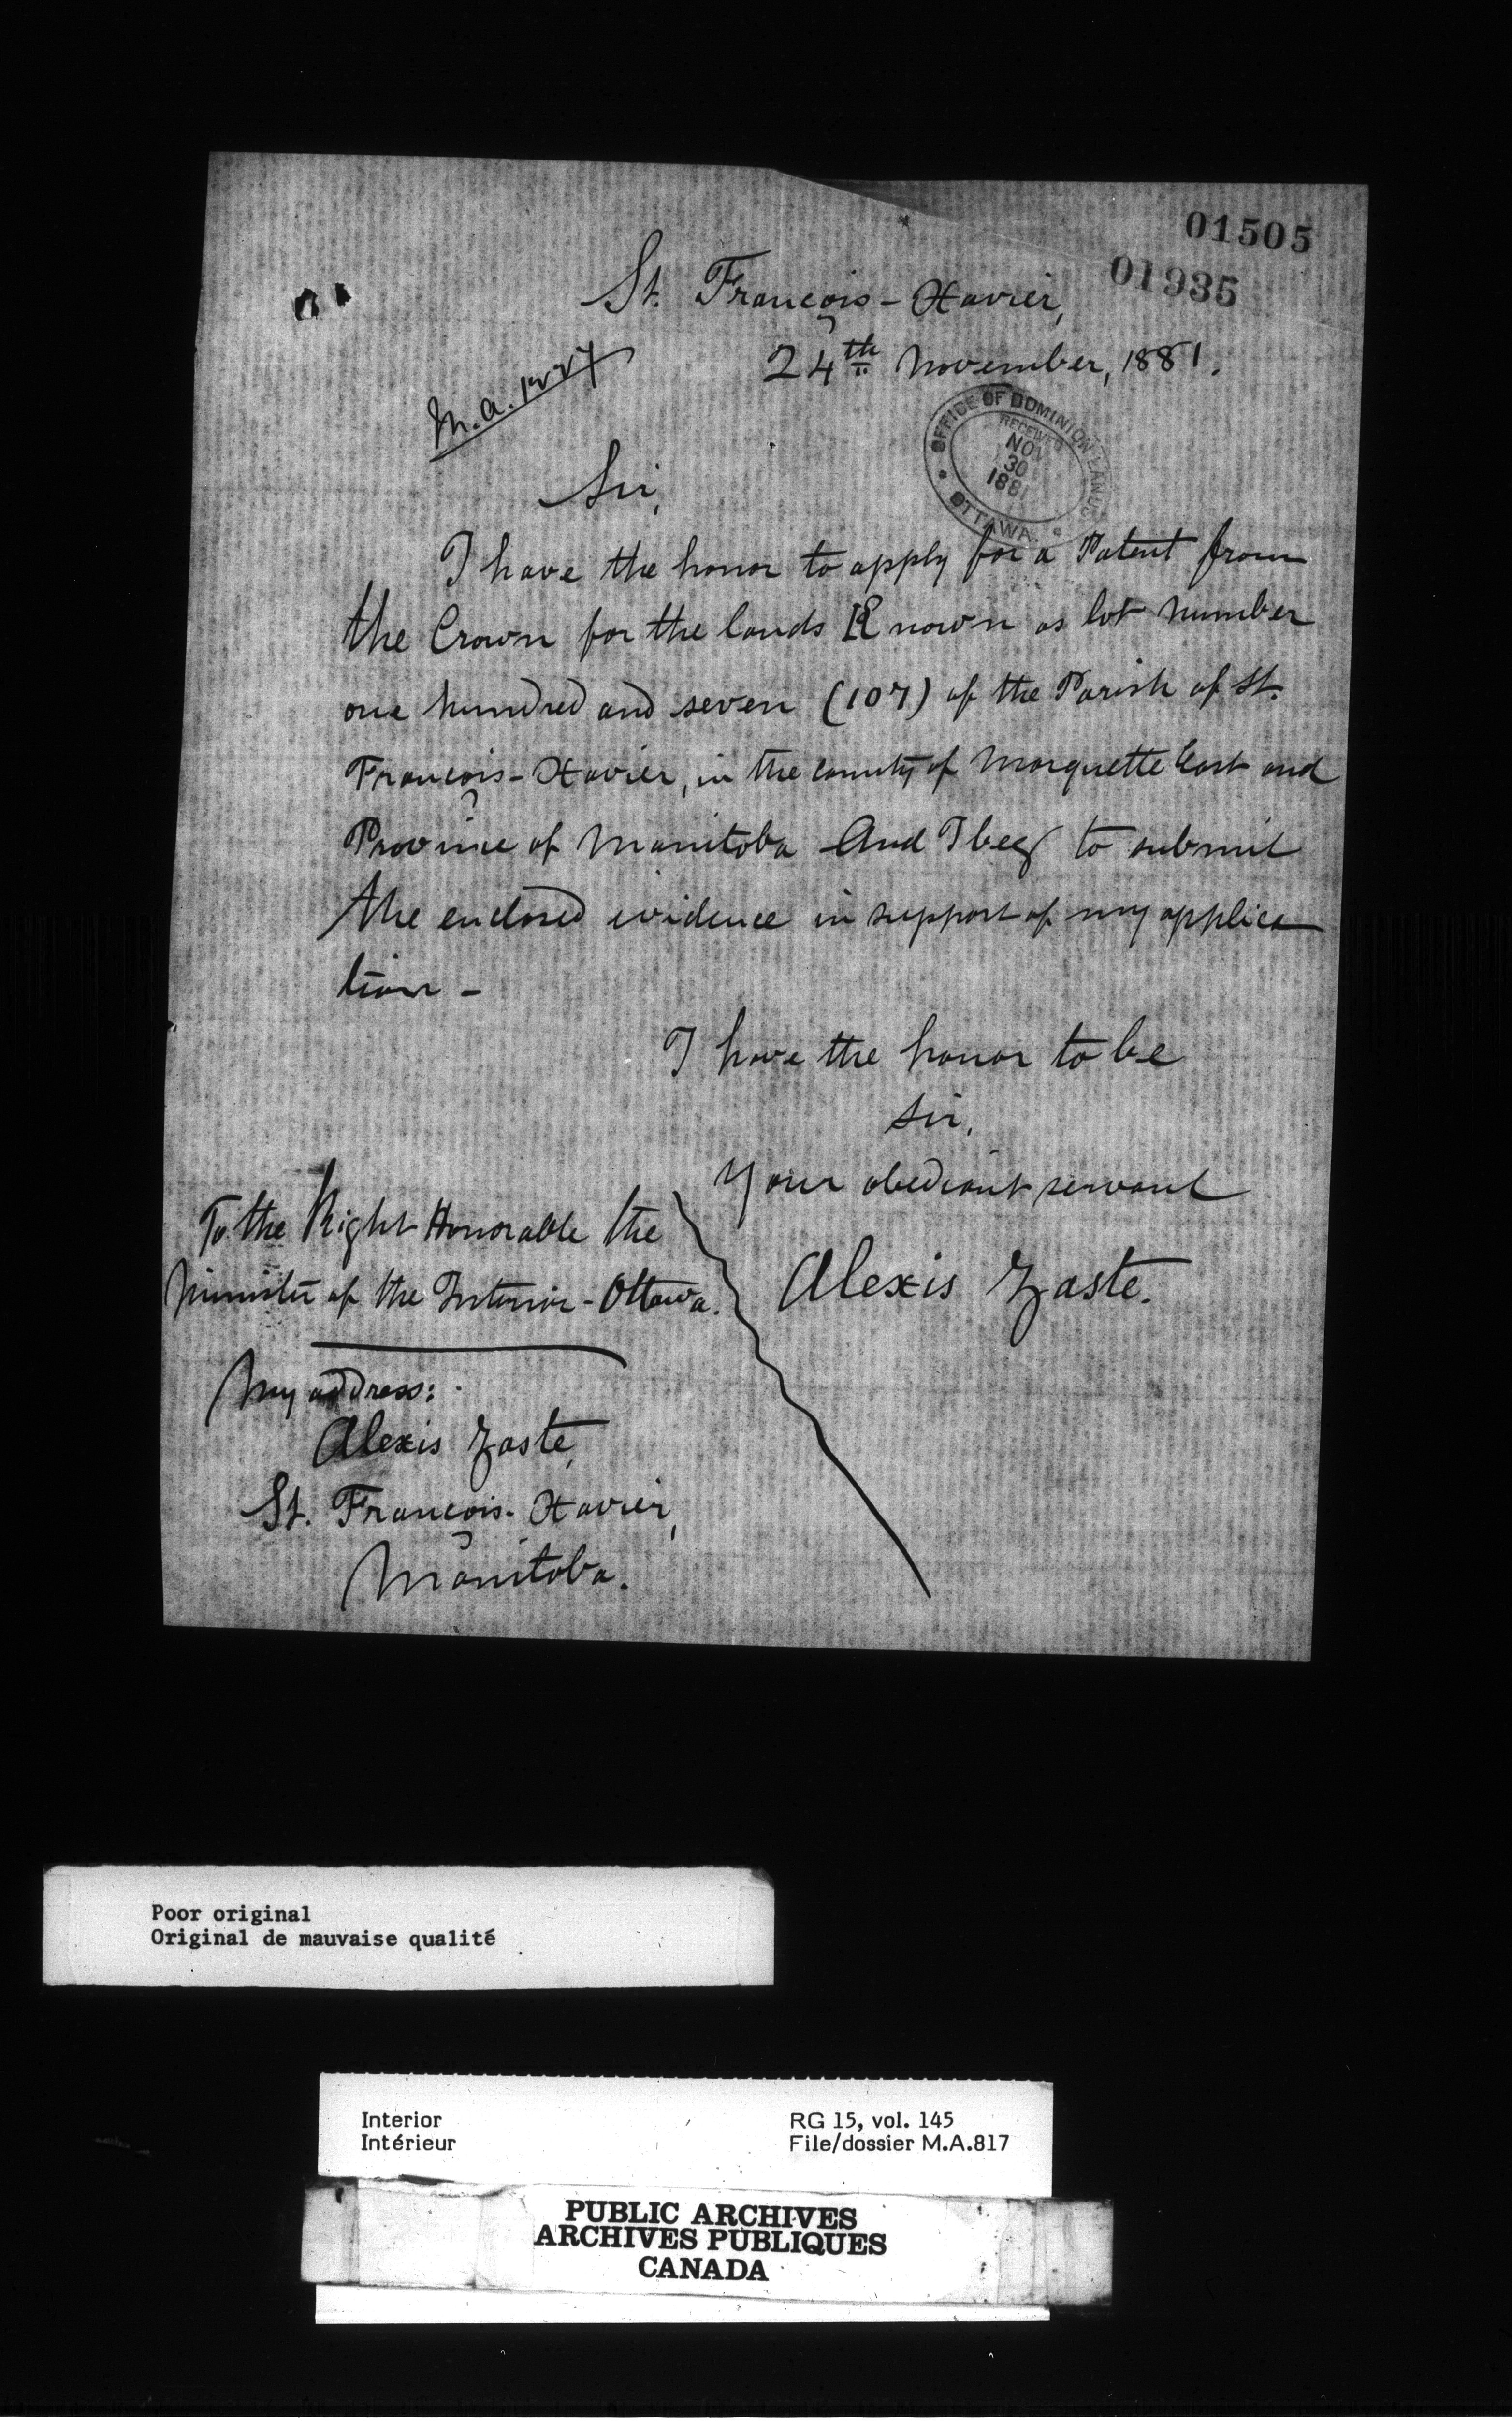 01505
01935
St. François-Xavier,
24th November, 1881.
M.A.
OFFICE OF DOMINION LANDS
RECEIVED
NOV
30
1881
OTTAWA.
Sir,
I have the honor to apply for a Patent from
the Crown for the lands Known as lot number
one hundred and seven (107) of the Parish of St.
François-Xavier, in the county of Marquette East and
Province of Manitoba And I beg to submit
the enclosed evidence in support of my applica
tion -
I have the honor to be
Sir,
Your obediant servant
To the Right Honorable the
Minister of the Interior - Ottawa.
Alexis Zaste.
My address:
Alexis Zaste,
St. François-Xavier,
Manitoba.
Poor original
Original de mauvaise qualité
Interior
Intérieur
RG 15, vol. 145
File/dossier M.A.817
PUBLIC ARCHIVES
ARCHIVES PUBLIQUES
CANADA